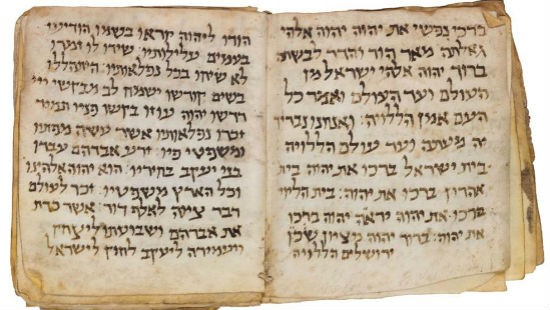 ברכי נפשי את יהוה יהוה אלהי
גדלתה מאד הוד והדר לבשת:
ברוך יהוה אלהי ישראל מן
העולם ועד העולם ואמר כל
העם אמן הללויה: ואנחנו נבריך
יה מעתה ועד עולם הללויה
בית ישראל ברכו את יהוה בית
אהרון ברכו את יהוה: בית הלוי
ברכו את יהוה יראי יהוה ברכו
את יהוה: ברוך יהוה מציון שכן
ירושלים הללויה
הודו ליהוה קראו בשמו הודיעו
בעמים עלילותיו: שירו לו זמרו
לו שיחו בכל נפלאותיו: היתהללו
בשם קודשו ישמח לב מבקשי ייי
דרשו יהוה עוזו בקשו פניו תמיד
זכרו נפלאותיו אשר עשה מופתו
ומשפטי פיו: זרע אברהם עבדו
בני יעקב בחיריו: הוא יהוה אלהינו
וכל הארץ משפטיו: זכר לעולם
דבר ציוה לאלף דור: אשר כרת
את אברהם ושבועתו ליצחק
ויעמידה ליעקב לחוק לישראל